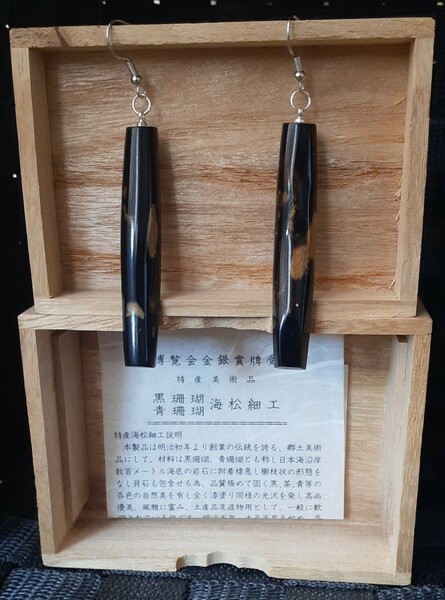 博覧会金銀賞牌受
特産美術品
黒珊瑚
青珊瑚 海松細工
特産海松細工説明
本製品は明治初年より創業の伝統を誇る、郷土美術
品にして、材料は黒珊瑚、青珊瑚とも称し日本海沿岸
数百メートル海底の岩石に附着棲息し樹枝状の形態を
なし貝石も包含せる為、品質極めて固く黒、茶、青等の
各色の自然美を有し全く漆塗り同様の光沢を発し高尚、
優美、風雅に富み、土産品及進物用として、一般に歓